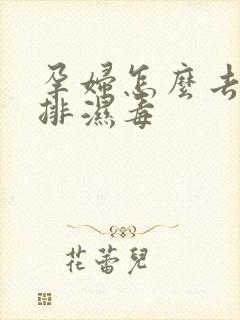 孕婦怎麼去
排濕毒
花蕾兒